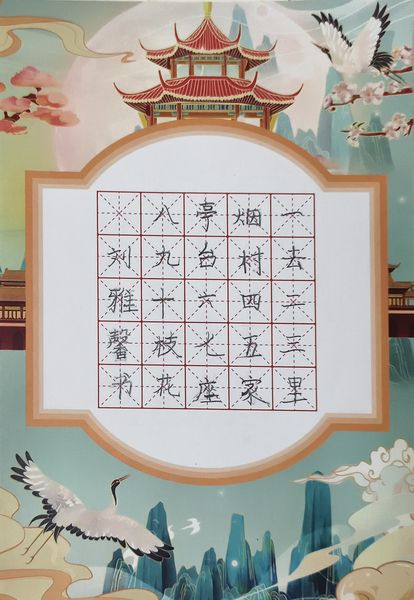 一去二三里
烟村四五家
亭台六七座
八九十枝花
刘雅馨书